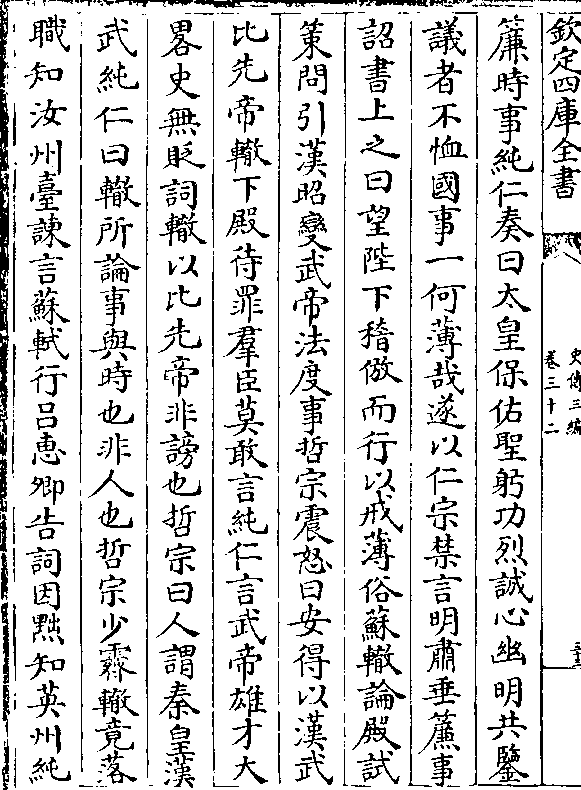 欽定四庫全書
史傳三編
卷三十二
簾時事純仁奏曰太皇保佑聖躬功烈誠心幽明共鑒
議者不恤國事一何薄哉遂以仁宗禁言明肅垂簾事
詔書上之曰望陛下稽倣而行以戒薄俗蘇轍論殿試
策問引漢昭變武帝法度事哲宗震怒曰安得以漢武
比先帝轍下殿待罪羣臣莫敢言純仁言武帝雄才大
畧史無貶詞轍以比先帝非謗也哲宗曰人謂秦皇漢
武純仁曰轍所論事與時也非人也哲宗少霽轍竟落
職知汝州臺諫言蘇軾行吕惠卿告詞因黜知英州純